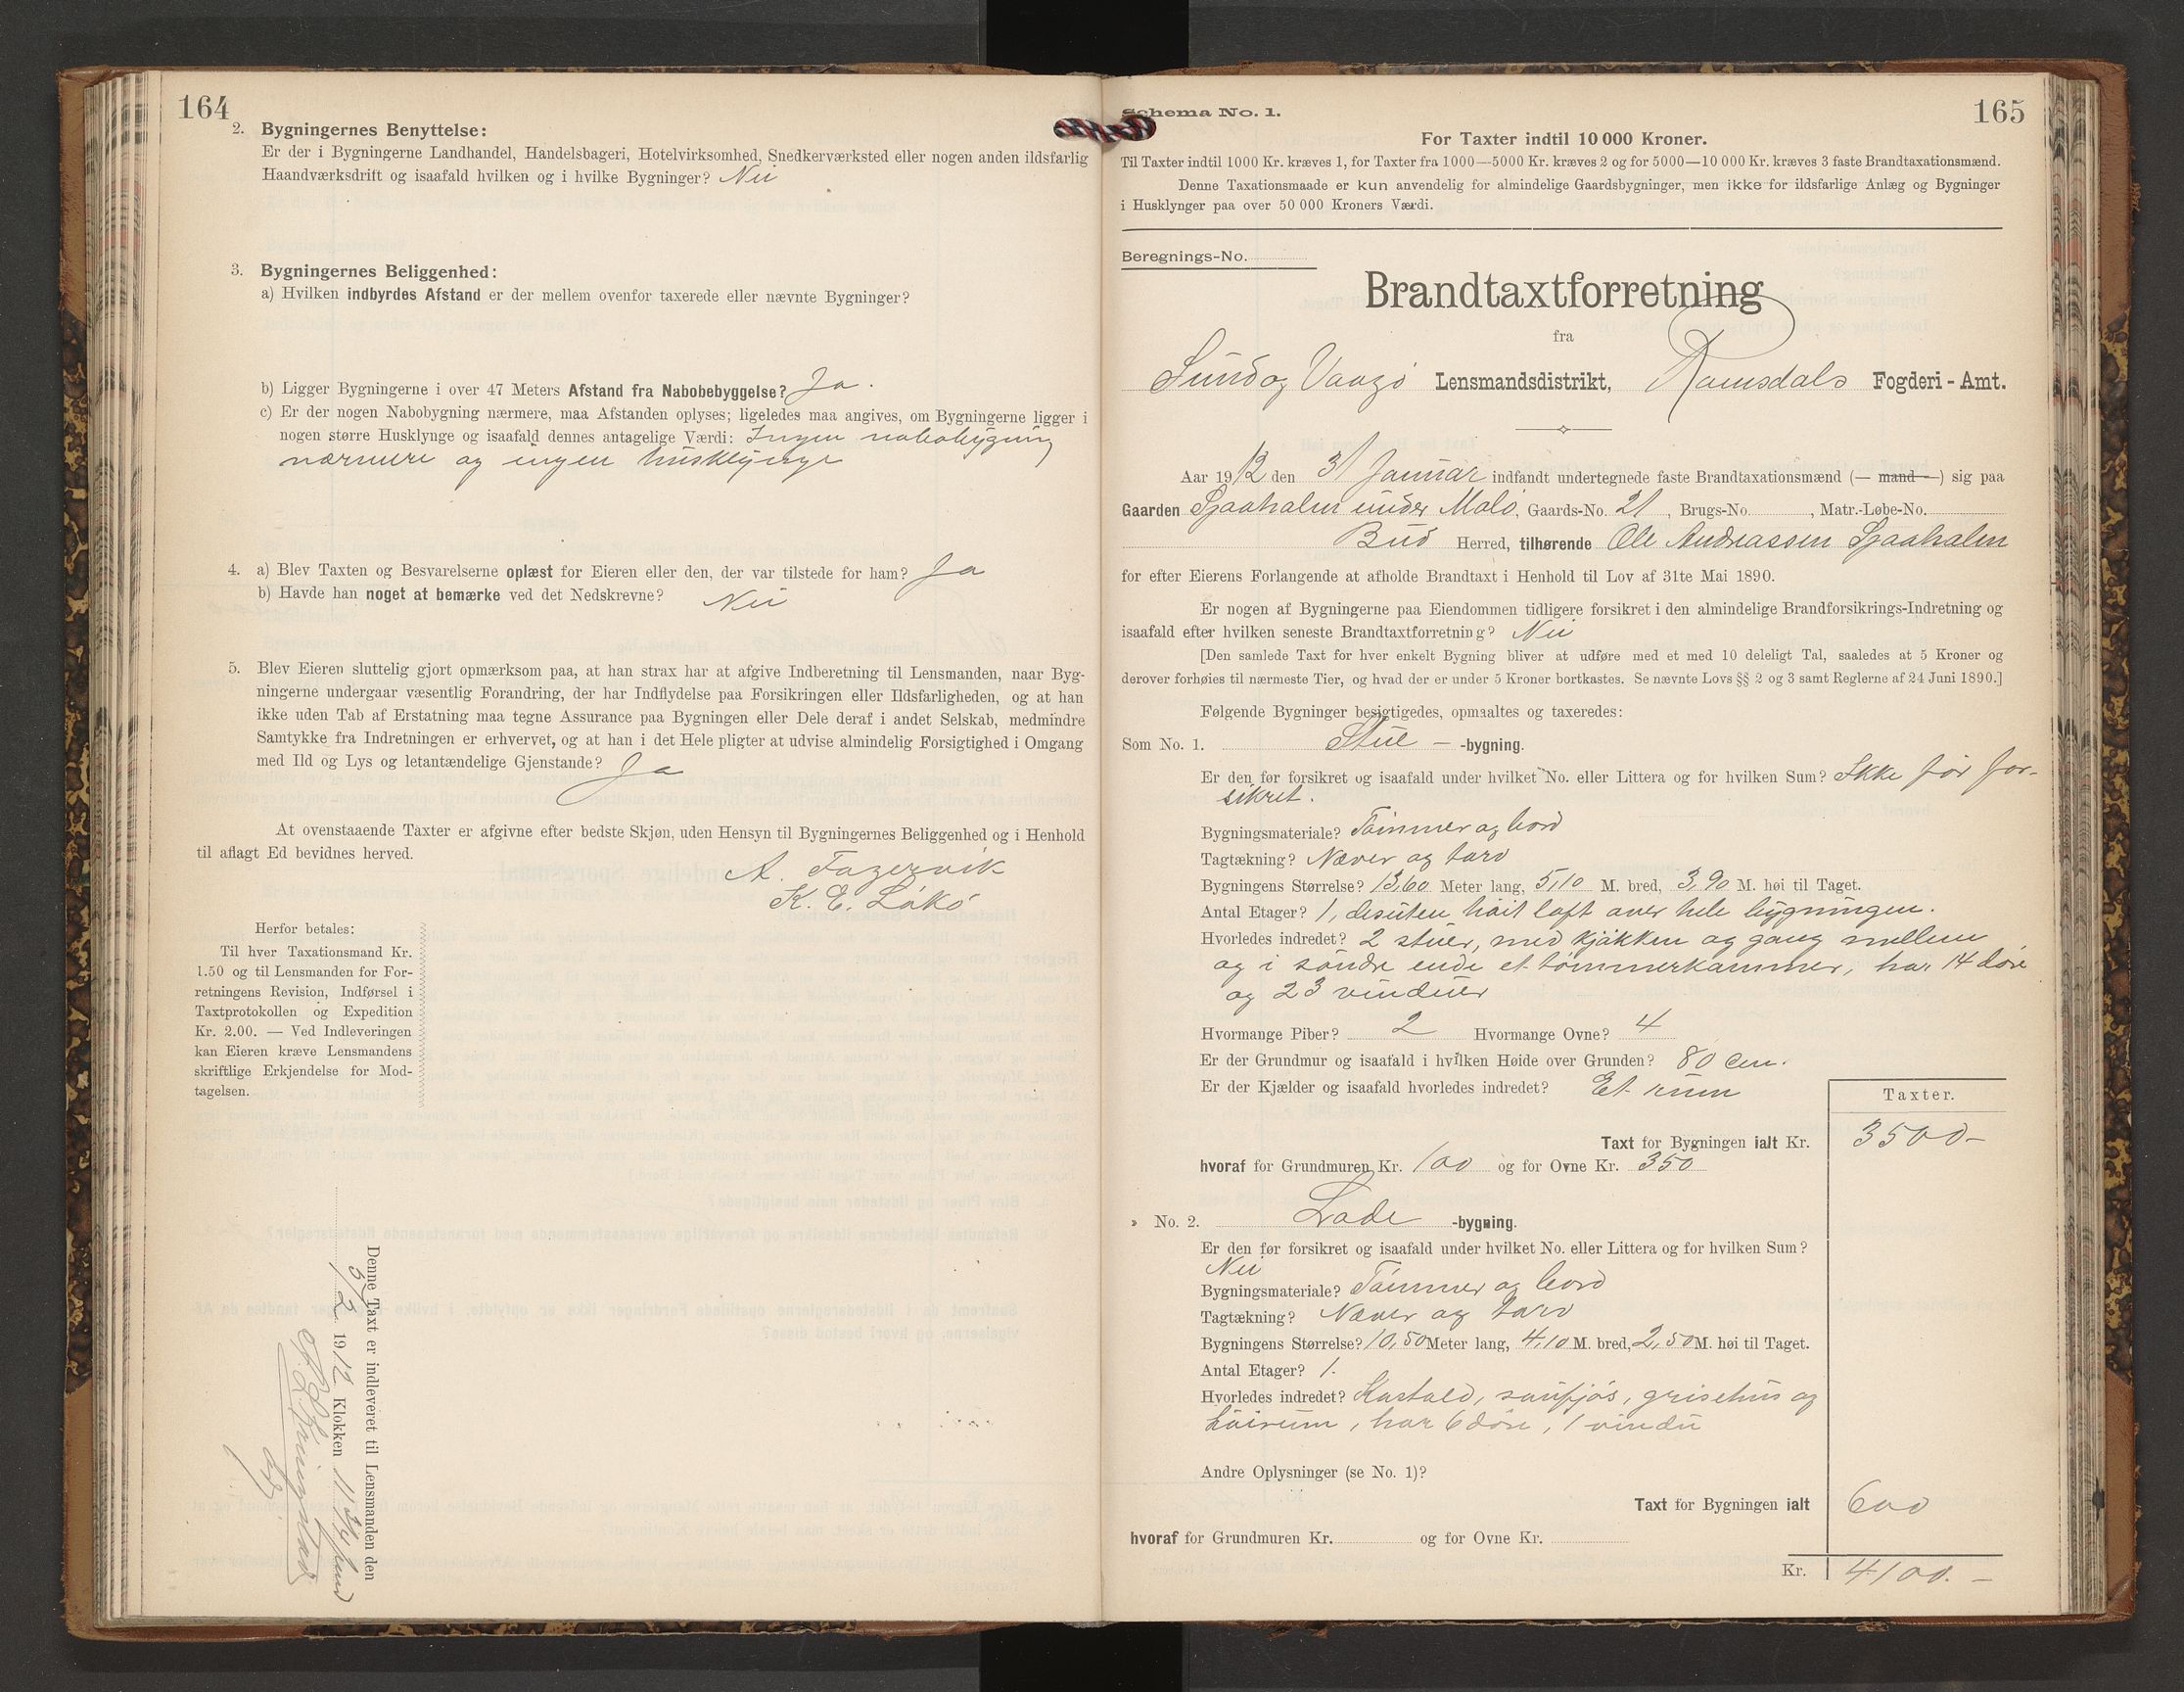 164
2. Bygningernes Benyttelse:
Er der i Bygningerne Landhandel, Handelsbageri, Hotelvirksomhed, Snedkerværksted eller nogen anden ildsfarlig
Haandværksdrift og isaafald hvilken og i hvilke Bygninger? Nei
3. Bygningernes Beliggenhed:
a) Hvilken indbyrdes Afstand er der mellem ovenfor taxerede eller nævnte Bygninger?
b) Ligger Bygningerne i over 47 Meters Afstand fra Nabobebyggelse? Ja.
c) Er der nogen Nabobygning nærmere, maa Afstanden oplyses; ligeledes maa angives, om Bygningerne ligger i
nogen større Husklynge og isaafald dennes antagelige Værdi: Ingen nabobygning
nærmere og ingen husklynge
4. a) Blev Taxten og Besvarelserne oplæst for Eieren eller den, der var tilstede for ham? Ja
b) Havde han noget at bemærke ved det Nedskrevne? Nei
5. Blev Eieren sluttelig gjort opmærksom paa, at han strax har at afgive Indberetning til Lensmanden, naar Byg-
ningerne undergaar væsentlig Forandring, der har Indflydelse paa Forsikringen eller Ildsfarligheden, og at han
ikke uden Tab af Erstatning maa tegne Assurance paa Bygningen eller Dele deraf i andet Selskab, medmindre
Samtykke fra Indretningen er erhvervet, og at han i det Hele pligter at udvise almindelig Forsigtighed i Omgang
med Ild og Lys og letantændelige Gjenstande? Ja
At ovenstaaende Taxter er afgivne efter bedste Skjøn, uden Hensyn til Bygningernes Beliggenhed og i Henhold
til aflagt Ed bevidnes herved.
A. Fagervik
K. E. Løkø
Herfor betales:
Til hver Taxationsmand Kr.
1.50 og til Lensmanden for For-
retningens Revision, Indførsel i
Taxtprotokollen og Expedition
Kr. 2.00. — Ved Indleveringen
kan Eieren kræve Lensmandens
skriftlige Erkjendelse for Mod-
tagelsen.
Denne Taxt er indleveret til Lensmanden den
5/2 1912 Klokken 11
165
Schema No. 1.
For Taxter indtil 10 000 Kroner.
Til Taxter indtil 1000 Kr. kræves 1, for Taxter fra 1000—5000 Kr. kræves 2 og for 5000—10 000 Kr. kræves 3 faste Brandtaxationsmænd.
Denne Taxationsmaade er kun anvendelig for almindelige Gaardsbygninger, men ikke for ildsfarlige Anlæg og Bygninger
i Husklynger paa over 50 000 Kroners Værdi.
Beregnings-No.
Brandtaxtforretning
fra
Sund og Vaagø Lensmandsdistrikt, Romsdals Fogderi - Amt.
Aar 1912 den 31 Januar indfandt undertegnede faste Brandtaxationsmænd (— mand —) sig paa
Gaarden Sjaaholm under Malø, Gaards-No. 21, Brugs-No. , Matr.-Løbe-No.
Bud Herred, tilhørende Ole Andreassen Sjaaholm
for efter Eierens Forlangende at afholde Brandtaxt i Henhold til Lov af 31te Mai 1890.
Er nogen af Bygningerne paa Eiendommen tidligere forsikret i den almindelige Brandforsikrings-Indretning og
isaafald efter hvilken seneste Brandtaxtforretning? Nei
[Den samlede Taxt for hver enkelt Bygning bliver at udføre med et med 10 deleligt Tal, saaledes at 5 Kroner og
derover forhøies til nærmeste Tier, og hvad der er under 5 Kroner bortkastes. Se nævnte Lovs §§ 2 og 3 samt Reglerne af 24 Juni 1890.]
Følgende Bygninger besigtigedes, opmaaltes og taxeredes:
Som No. 1. Stue - -bygning.
Er den før forsikret og isaafald under hvilket No. eller Littera og for hvilken Sum? Ikke før for-
sikret.
Bygningsmateriale? Tømmer og bord
Tagtækning? Næver og torv
Bygningens Størrelse? 13,60 Meter lang, 5,10 M. bred, 3,90 M. høi til Taget.
Antal Etager? 1, desuten høit loft over hele bygningen.
Hvorledes indredet? 2 stuer, med kjøkken og gang mellem
og i søndre ende et tømmerkammer, har 14 døre
og 23 vinduer
Hvormange Piber? 2 Hvormange Ovne? 4
Er der Grundmur og isaafald i hvilken Høide over Grunden? 80 cm.
Er der Kjælder og isaafald hvorledes indredet? Et rum
Taxter.
Taxt for Bygningen ialt Kr. 3500-
hvoraf for Grundmuren Kr. 100 og for Ovne Kr. 350
» No. 2. Lade -bygning.
Er den før forsikret og isaafald under hvilket No. eller Littera og for hvilken Sum?
Nei
Bygningsmateriale? Tømmer og bord
Tagtækning? Næver og torv
Bygningens Størrelse? 10,50 Meter lang, 4,10 M. bred, 2,50 M. høi til Taget.
Antal Etager? 1.
Hvorledes indredet? Kostald, saufjøs, grisehus og
høirum, har 6 døre, 1 vindu
Andre Oplysninger (se No. 1)?
Taxt for Bygningen ialt 600
hvoraf for Grundmuren Kr. og for Ovne Kr.
Kr. 4100.-